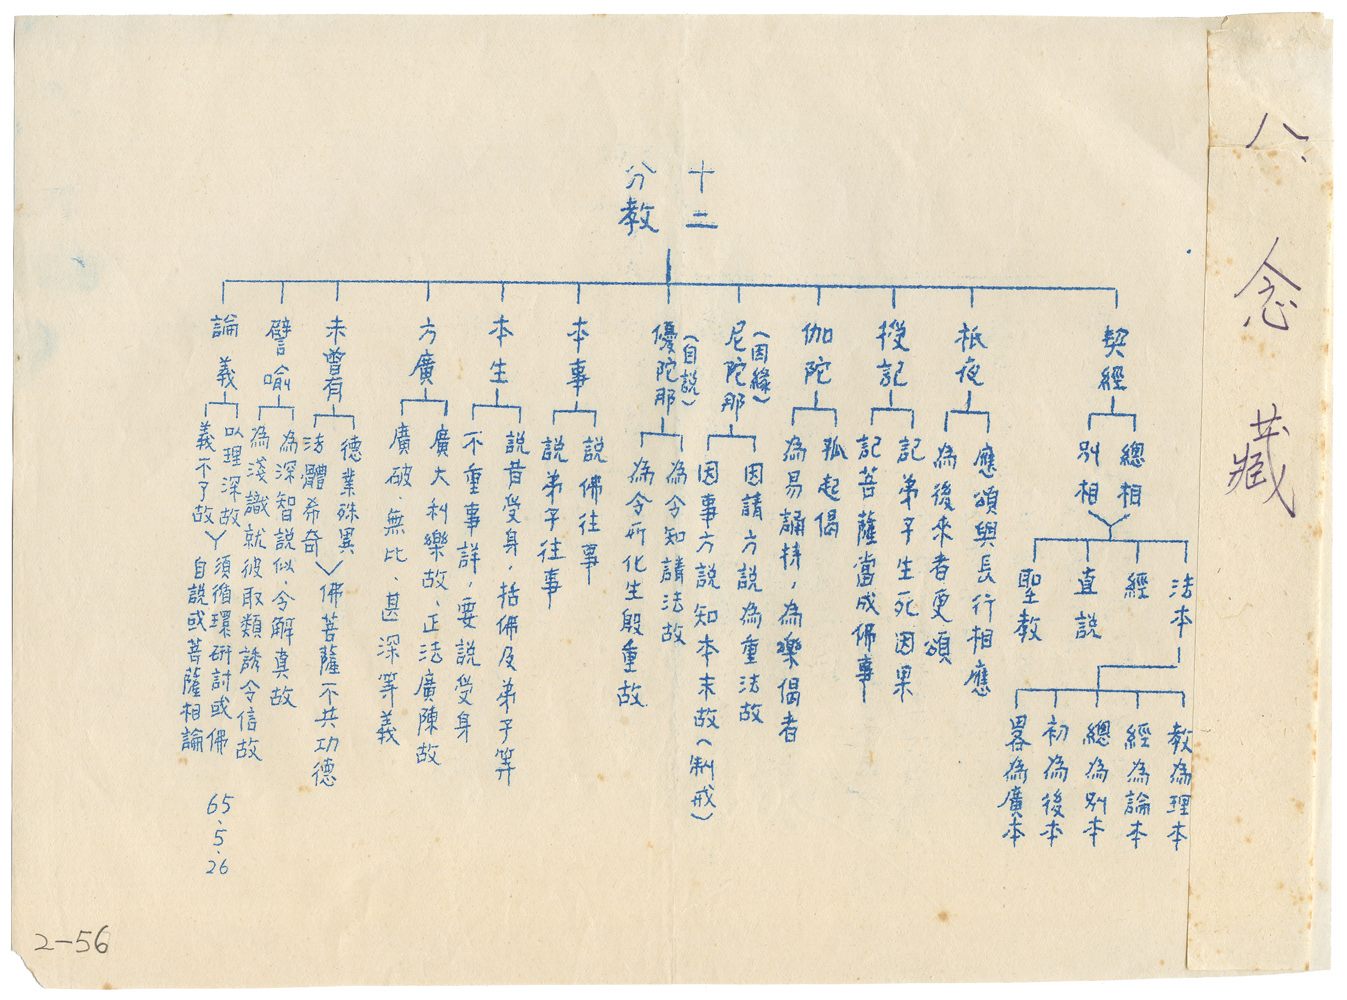 八、念藏
十二
分教
契經
總相
別相
法本
經
直說
聖教
教為理本
經為論本
總為別本
初為後本
畧為廣本
祇夜
應頌與長行相應
為後來者更頌
授記
記弟子生死因果
記菩薩當成佛事
伽陀
孤起偈
為易誦持，為樂偈者
尼陀那
(因緣)
因請方說為重法故
因事方說知本末故(制戒)
優陀那
(自說)
為令知請法故
為令所化生殷重故
本事
說佛往事
說弟子往事
本生
說昔受身，括佛及弟子等
不重事詳，要說受身
方廣
廣大利樂故、正法廣陳故
廣破、無比、甚深等義
未曾有
德業殊異
法體希奇
佛菩薩不共功德
譬喻
為深智說似，令解真故
為淺識就彼取類誘令信故
論義
以理深故
義不了故
須循環研討或佛
自說或菩薩相論
65、5、26
2-56